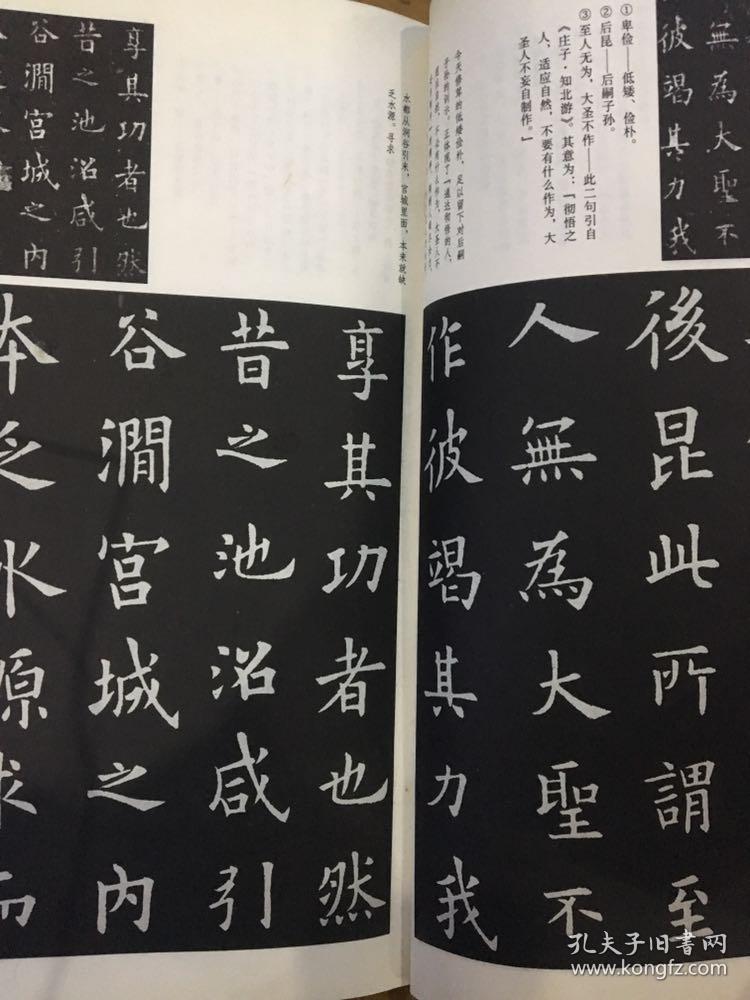 無為大聖不
彼竭其力我
①卑俭——低矮、俭朴。
②后昆——后嗣子孙。
③至人无为，大圣不作——此二句引自
《庄子·知北游》。其意为：「彻悟之
人，适应自然，不要有什么作为，大
圣人不妄自制作。」
今天修葺的低矮俭朴，足以留下对后嗣
子孙的训示。正体现了「通达彻悟的人，
後昆此所謂至
人無為大聖不
作彼竭其力我
水都从涧谷引来，宫城里面，本来就缺
乏水源。寻求
享其功者也然
昔之池沼咸引
谷澗宮城之内
享其功者也然
昔之池沼咸引
谷澗宮城之内
本乏水源求而
孔夫子旧書网
www.kongfz.com